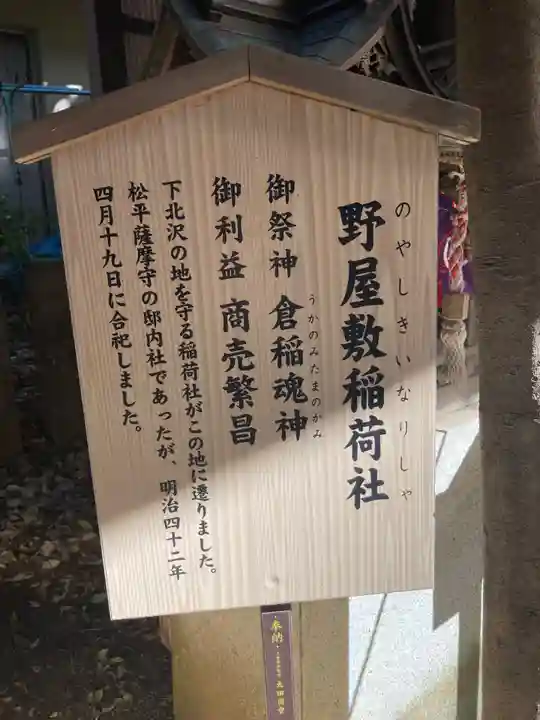 のやしきいなりしゃ
野屋敷稲荷社
御祭神 倉稲魂神
うかのみたまのかみ
御利益 商売繁昌
下北沢の地を守る稲荷社がこの地に遷りました。
松平薩摩守の邸内社であったが、明治四十二年
四月十九日に合祀しました。
奉納